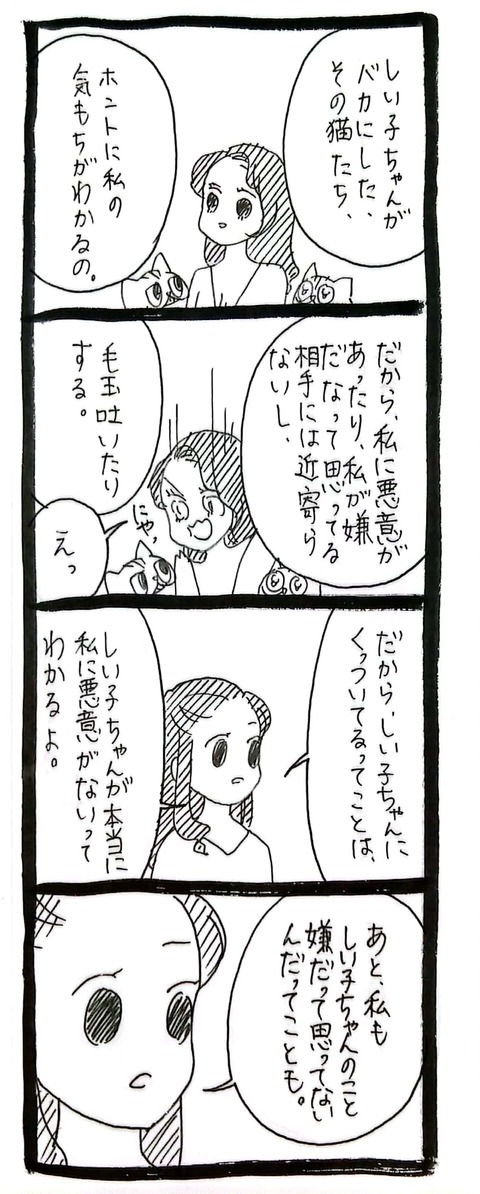 しい子ちゃんが
バカにした、
その猫たち、
ホントに私の
気もちがわかるの。
だから、私に悪意が
あったり、私が嫌
だなって思ってる
相手には近寄ら
ないし、
毛玉吐いたり
する。
にゃっ
えっ
だから、しい子ちゃんに
くっついてるってことは、
しい子ちゃんが本当に
私に悪意がないって
わかるよ。
あと、私も
しい子ちゃんのこと
嫌だって思ってない
んだってことも。